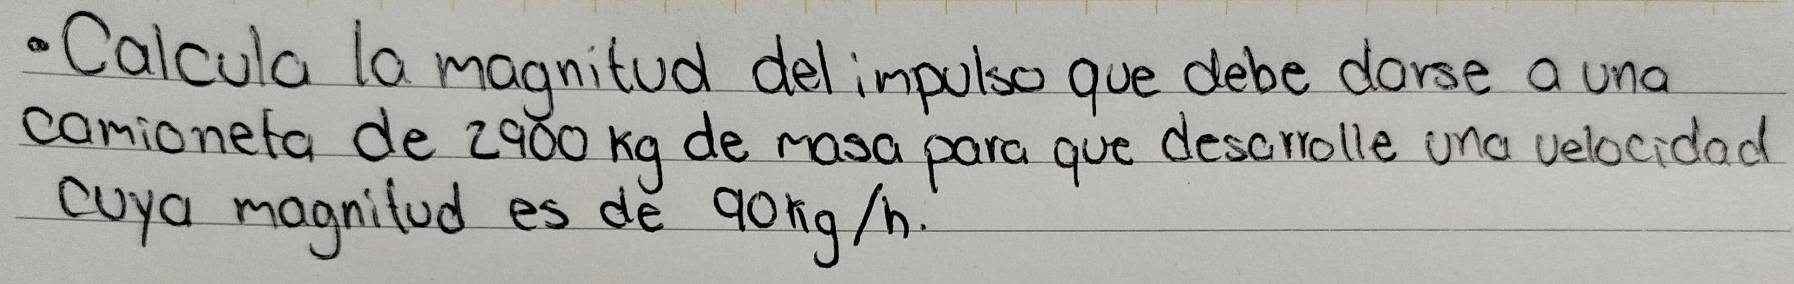 •Calcula la magnitud del impulso que debe darse a una
camioneta de 2900 kg de masa para que desarrolle una velocidad
cuya magnitud es de 90kg/h.